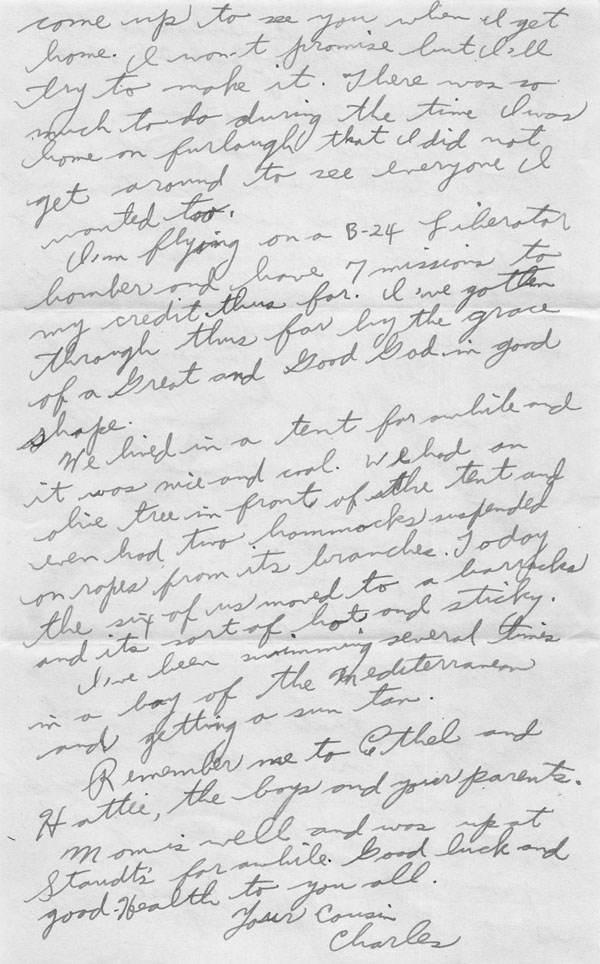 come up to see you when I get
home. I won't promise but I'll
try to make it. There was so
much to do during the time I was
home on furlough that I did not
get around to see everyone I
wanted too.
I'm flying on a B-24 Liberator
bomber and have 7 missions to
my credit thus far. I've gotten
through thus far by the grace
of a Great and Good God in good
shape.
We lived in a tent for awhile and
it was nice and cool. We had an
olive tree in front of the tent and
even had two hammocks suspended
on ropes from its branches. Today
the six of us moved to a barracks
and its sort of hot and sticky.
I've been swimming several times
in a bay of the Mediterranean
and getting a sun tan.
Remember me to Ethel and
Hattie, the boys and your parents.
Mom is well and was up at
Staudt's for awhile. Good luck and
good-Health to you all.
Your Cousin
Charles